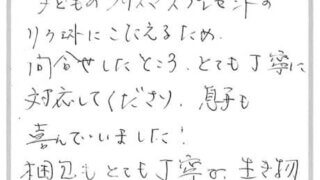 子どものクリスマスプレゼントの
リクエストにこたえるため
問合せしたところ、とても丁寧に
対応してくださり、息子も
喜んでいました!
梱包もとても丁寧で、生き物